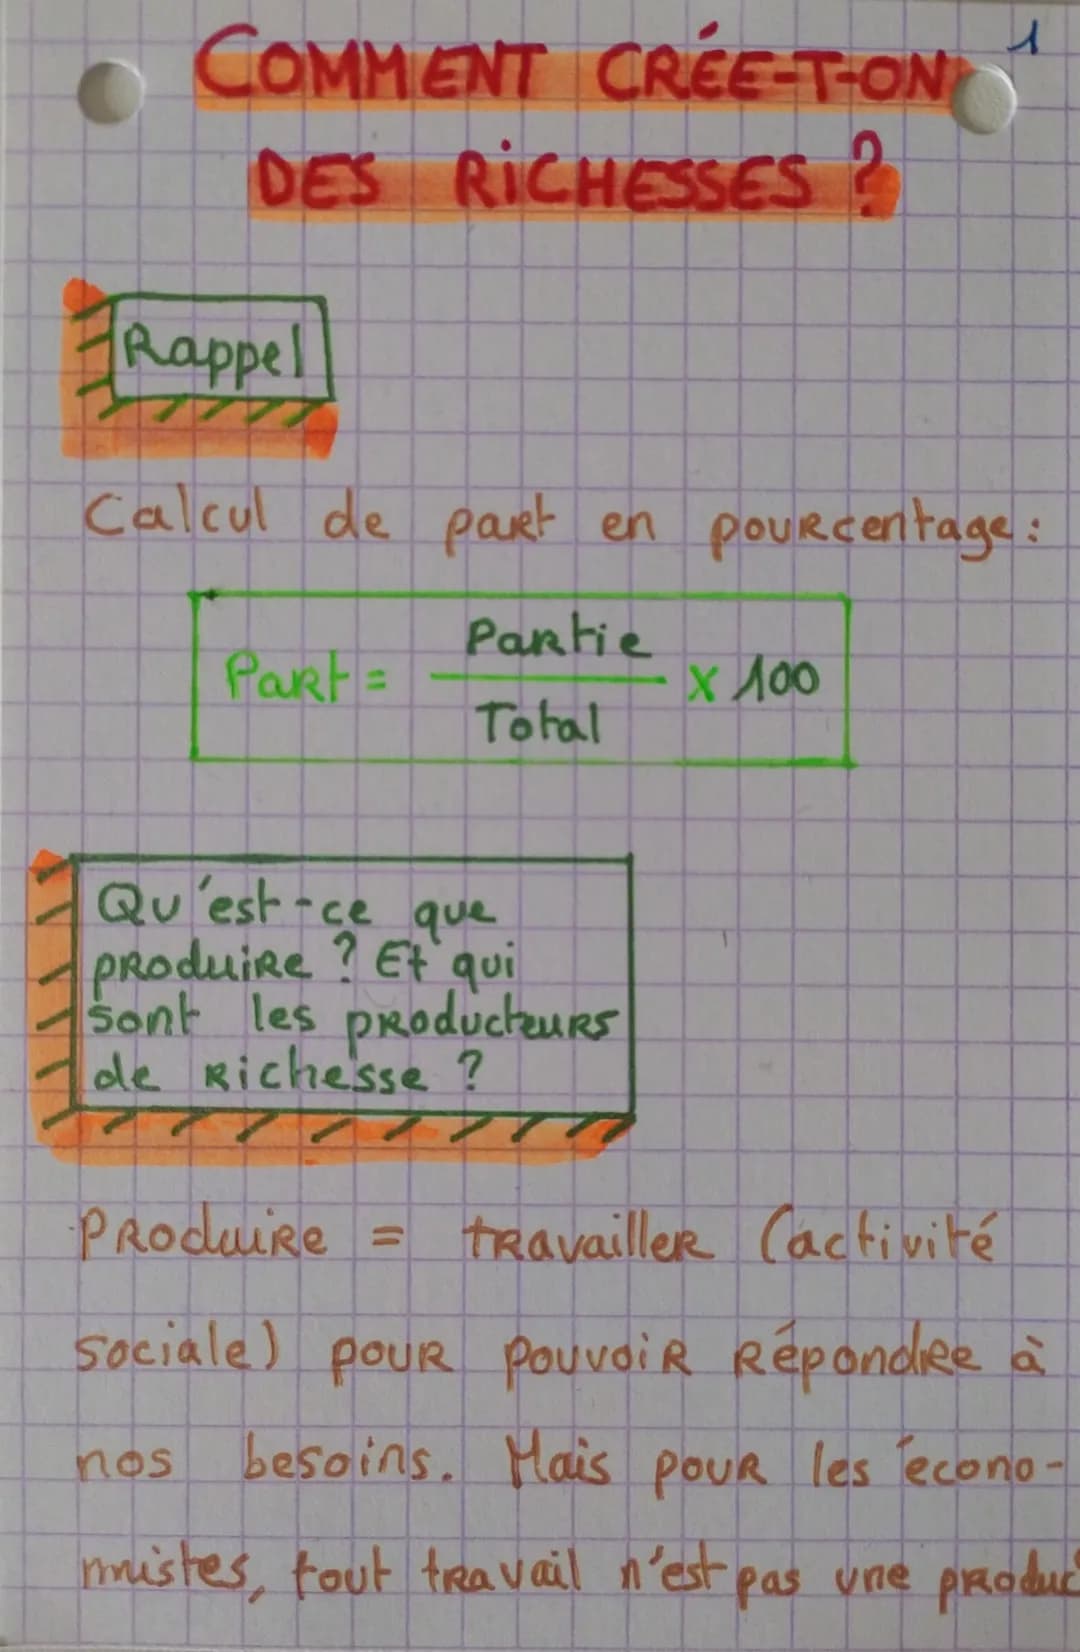 1
COMMENT CRÉE-T-ON
DES RICHESSES ?
Rappel
Calcul de part en pourcentage :
Part = Partie / Total x 100
Qu'est-ce que
produire ? Et qui
sont les producteurs
de richesse ?
Produire = travailler (activité
sociale) pour pouvoir répondre à
nos besoins. Mais pour les écono-
mistes, tout travail n'est pas une produc